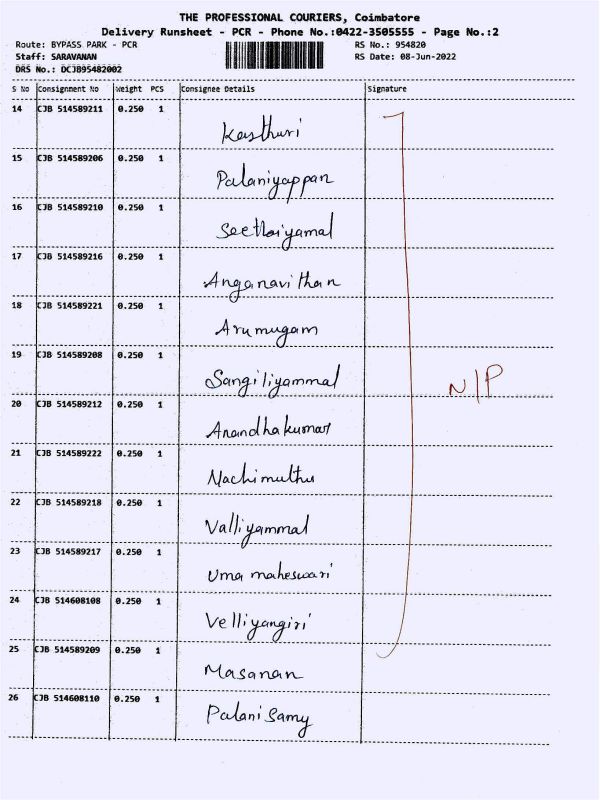 THE PROFESSIONAL COURIERS, Coimbatore
Delivery Runsheet - PCR - Phone No.:0422-3505555 - Page No.:2
Route: BYPASS PARK - PCR RS No.: 954820
Staff: SARAVANAN RS Date: 08-Jun-2022
DRS No.: DCJB95482002
S No Consignment No Weight PCS Consignee Details Signature
14 CJB 514589211 0.250 1
Kasthuri
15 CJB 514589206 0.250 1
Palaniyappan
16 CJB 514589210 0.250 1
Seethaiyamal
17 CJB 514589216 0.250 1
Anganavithan
18 CJB 514589221 0.250 1
Arumugam
19 CJB 514589208 0.250 1
Sangiliyammal N/P
20 CJB 514589212 0.250 1
Anandhakumar
21 CJB 514589222 0.250 1
Nachimuthu
22 CJB 514589218 0.250 1
Valliyammal
23 CJB 514589217 0.250 1
Uma maheswari
24 CJB 514608108 0.250 1
Velliyangiri
25 CJB 514589209 0.250 1
Masanan
26 CJB 514608110 0.250 1
Palani Samy